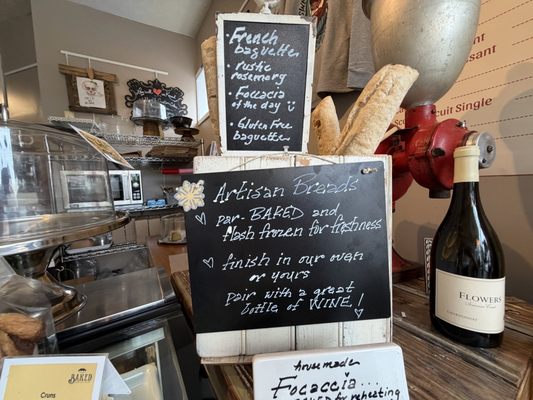 French
baguette
• rustic
rosemary
• Focacia
of the day
• Gluten Free
baguette
Artisan Breads
par-BAKED and
flash frozen for freshness
finish in our oven
or yours
pair with a great
bottle of WINE!
FLOWERS
CHARDONNAY
Focaccia...
for reheating
BAKED
Biscuit Single